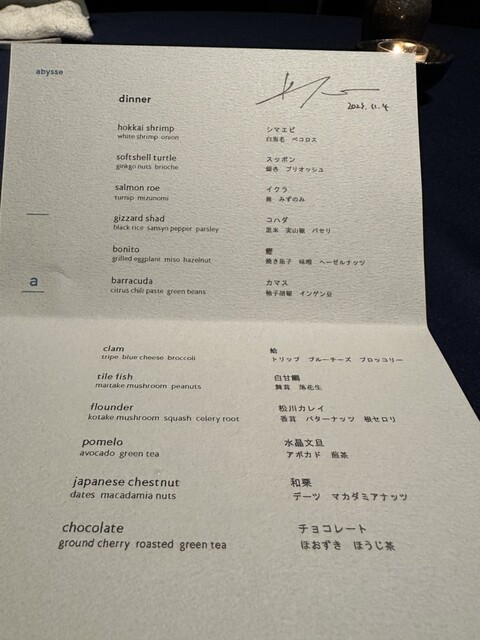 abysse
dinner
2023. 11. 4
hokkai shrimp
white shrimp onion
シマエビ
白海老 ペコロス
softshell turtle
ginkgo nuts brioche
スッポン
銀杏 ブリオッシュ
salmon roe
turnip mizunomi
イクラ
蕪 みずのみ
gizzard shad
black rice sansyn pepper parsley
コハダ
黒米 実山椒 パセリ
bonito
grilled eggplant miso hazelnut
鰹
焼き茄子 味噌 ヘーゼルナッツ
a
barracuda
citrus chili paste green beans
カマス
柚子胡椒 インゲン豆
clam
tripe blue cheese broccoli
蛤
トリップ ブルーチーズ ブロッコリー
tile fish
maitake mushroom peanuts
白甘鯛
舞茸 落花生
flounder
kotake mushroom squash celery root
松川カレイ
香茸 バターナッツ 根セロリ
pomelo
avocado green tea
水晶文旦
アボカド 煎茶
japanese chestnut
dates macadamia nuts
和栗
デーツ マカダミアナッツ
chocolate
ground cherry roasted green tea
チョコレート
ほおずき ほうじ茶